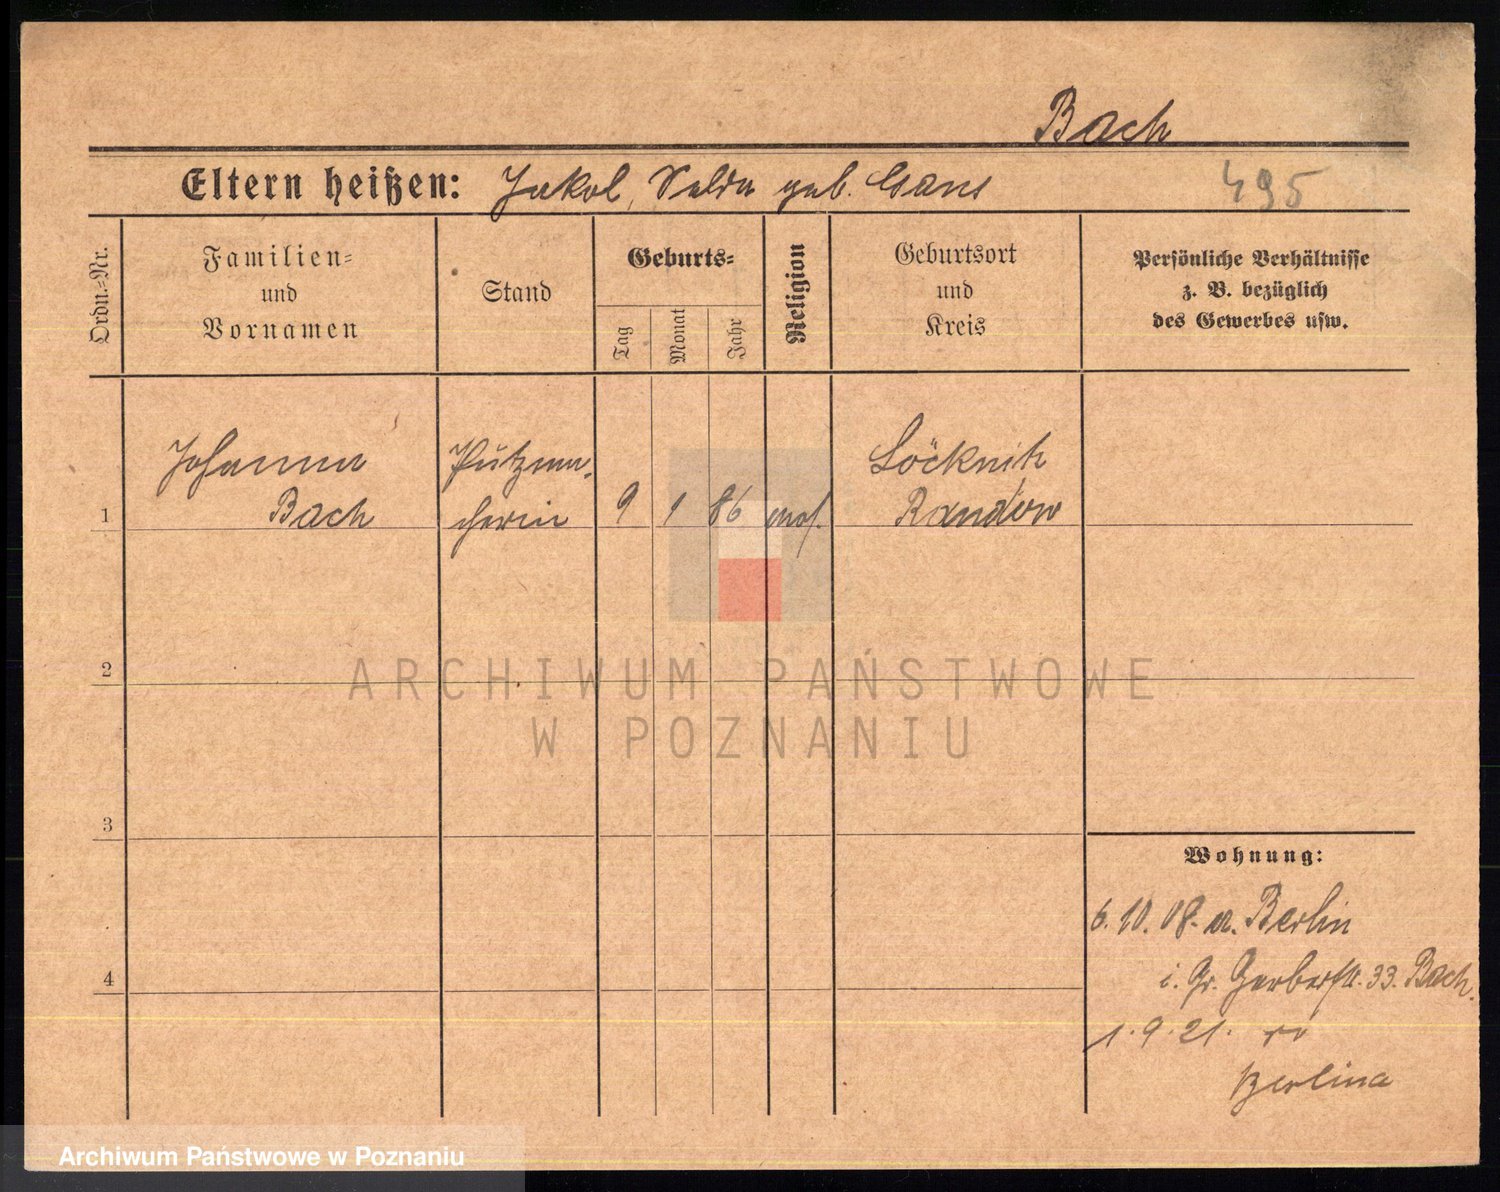 Bach
Eltern heißen: Jakob, Selda geb. Gans
495
Ordn.-Nr.
Familien-
und
Vornamen
Stand
Geburts-
Tag
Monat
Jahr
Religion
Geburtsort
und
Kreis
Persönliche Verhältnisse
z. B. bezüglich
des Gewerbes usw.
Johanna
Bach
Putzma-
cherin
9 1 86 mos.
Löcknitz
Randow
1
2
3
4
Wohnung:
6. 10. 08. a. Berlin
i. Gr. Gerberstr. 33. Bach.
1. 9. 21.
Berlina
ARCHIWUM PAŃSTWOWE
W POZNANIU
Archiwum Państwowe w Poznaniu